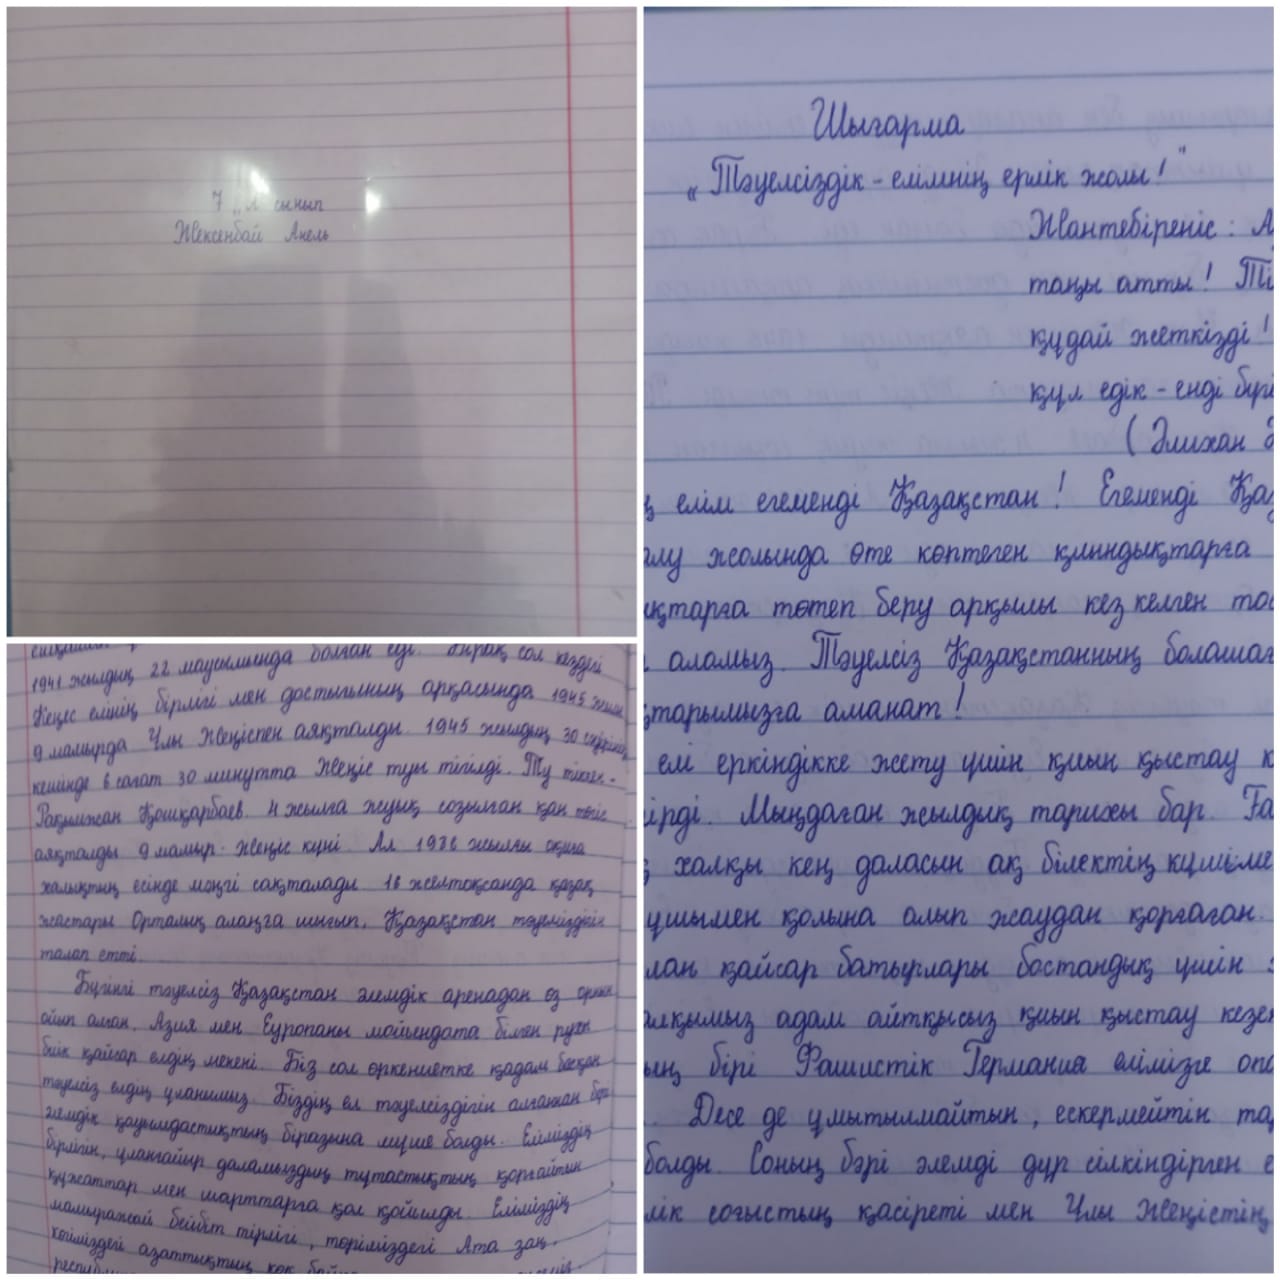 7 „ сынып
Жексенбай Анель
Шығарма
„Тәуелсіздік - елімнің ерлік жолы!"
Жантебіреніс: А
таңы атты! Ті
құдай жеткізді!
құл едік - енді бірі
(Әлихан
ң елім егеменді Қазақстан! Егеменді Қаз
алу жолында өте көптеген қиындықтарға
ықтарға төтеп беру арқылы кез келген
аламыз. Тәуелсіз Қазақстанның болашағ
қтарымызға аманат!
елі еркіндікке жету үшін қиын қыстау к
ірді. Мыңдаған жылдық тарихы бар. Ға
қ халқы кең даласын ақ білектің күшіме
ұшымен қолына алып жаудан қорғаған.
лан қайсар батырлары бостандық үшін
алқымыз адам айтқысыз қиын қыстау кезең
ың бірі Фашистік Германия елімізге опа
Десе де ұмытылмайтын, ескермейтін
болды. Соның бәрі әлемді дүр сілкіндірген
лік соғыстың қасіреті мен Ұлы Жеңістің
1941 жылдың 22 маусымында болған еді. Бірақ сол кездегі
Кеңес елінің бірлігі мен достығының арқасында 1945 жылы
9 мамырда Ұлы Жеңіспен аяқталды. 1945 жылдың 30
кешінде 6 сағат 30 минутта Жеңіс туы тігілді. Ту тіккен -
Рақымжан Қошқарбаев. 4 жылға жуық созылған қан төгіс
аяқталды 9 мамыр - Жеңіс күні Ал 1986 жылғы оқиға
халықтың есінде мәңгі сақталады. 16 желтоқсанда қазақ
жастары Орталық алаңға шығып, Қазақстан тәуелсіздігін
талап етті.
Бүгінгі тәуелсіз Қазақстан әлемдік аренадан өз орнын
ойып алған, Азия мен Еуропаны мойындата білген рухы
биік қайсар елдің мекені. Біз сол өркениетке қадам басқан
тәуелсіз елдің ұланымыз. Біздің ел тәуелсіздігін алғаннан бері
әлемдік қауымдастықтың біразына мүше болды. Еліміздің
бірлігін, ұланғайыр даламыздың тұтастықтың қорғайтын
құжаттар мен шарттарға қол қойылды. Еліміздің
мамыражай бейбіт тірлігі, төріміздегі Ата заң,
көгіміздегі азаттықтың көк